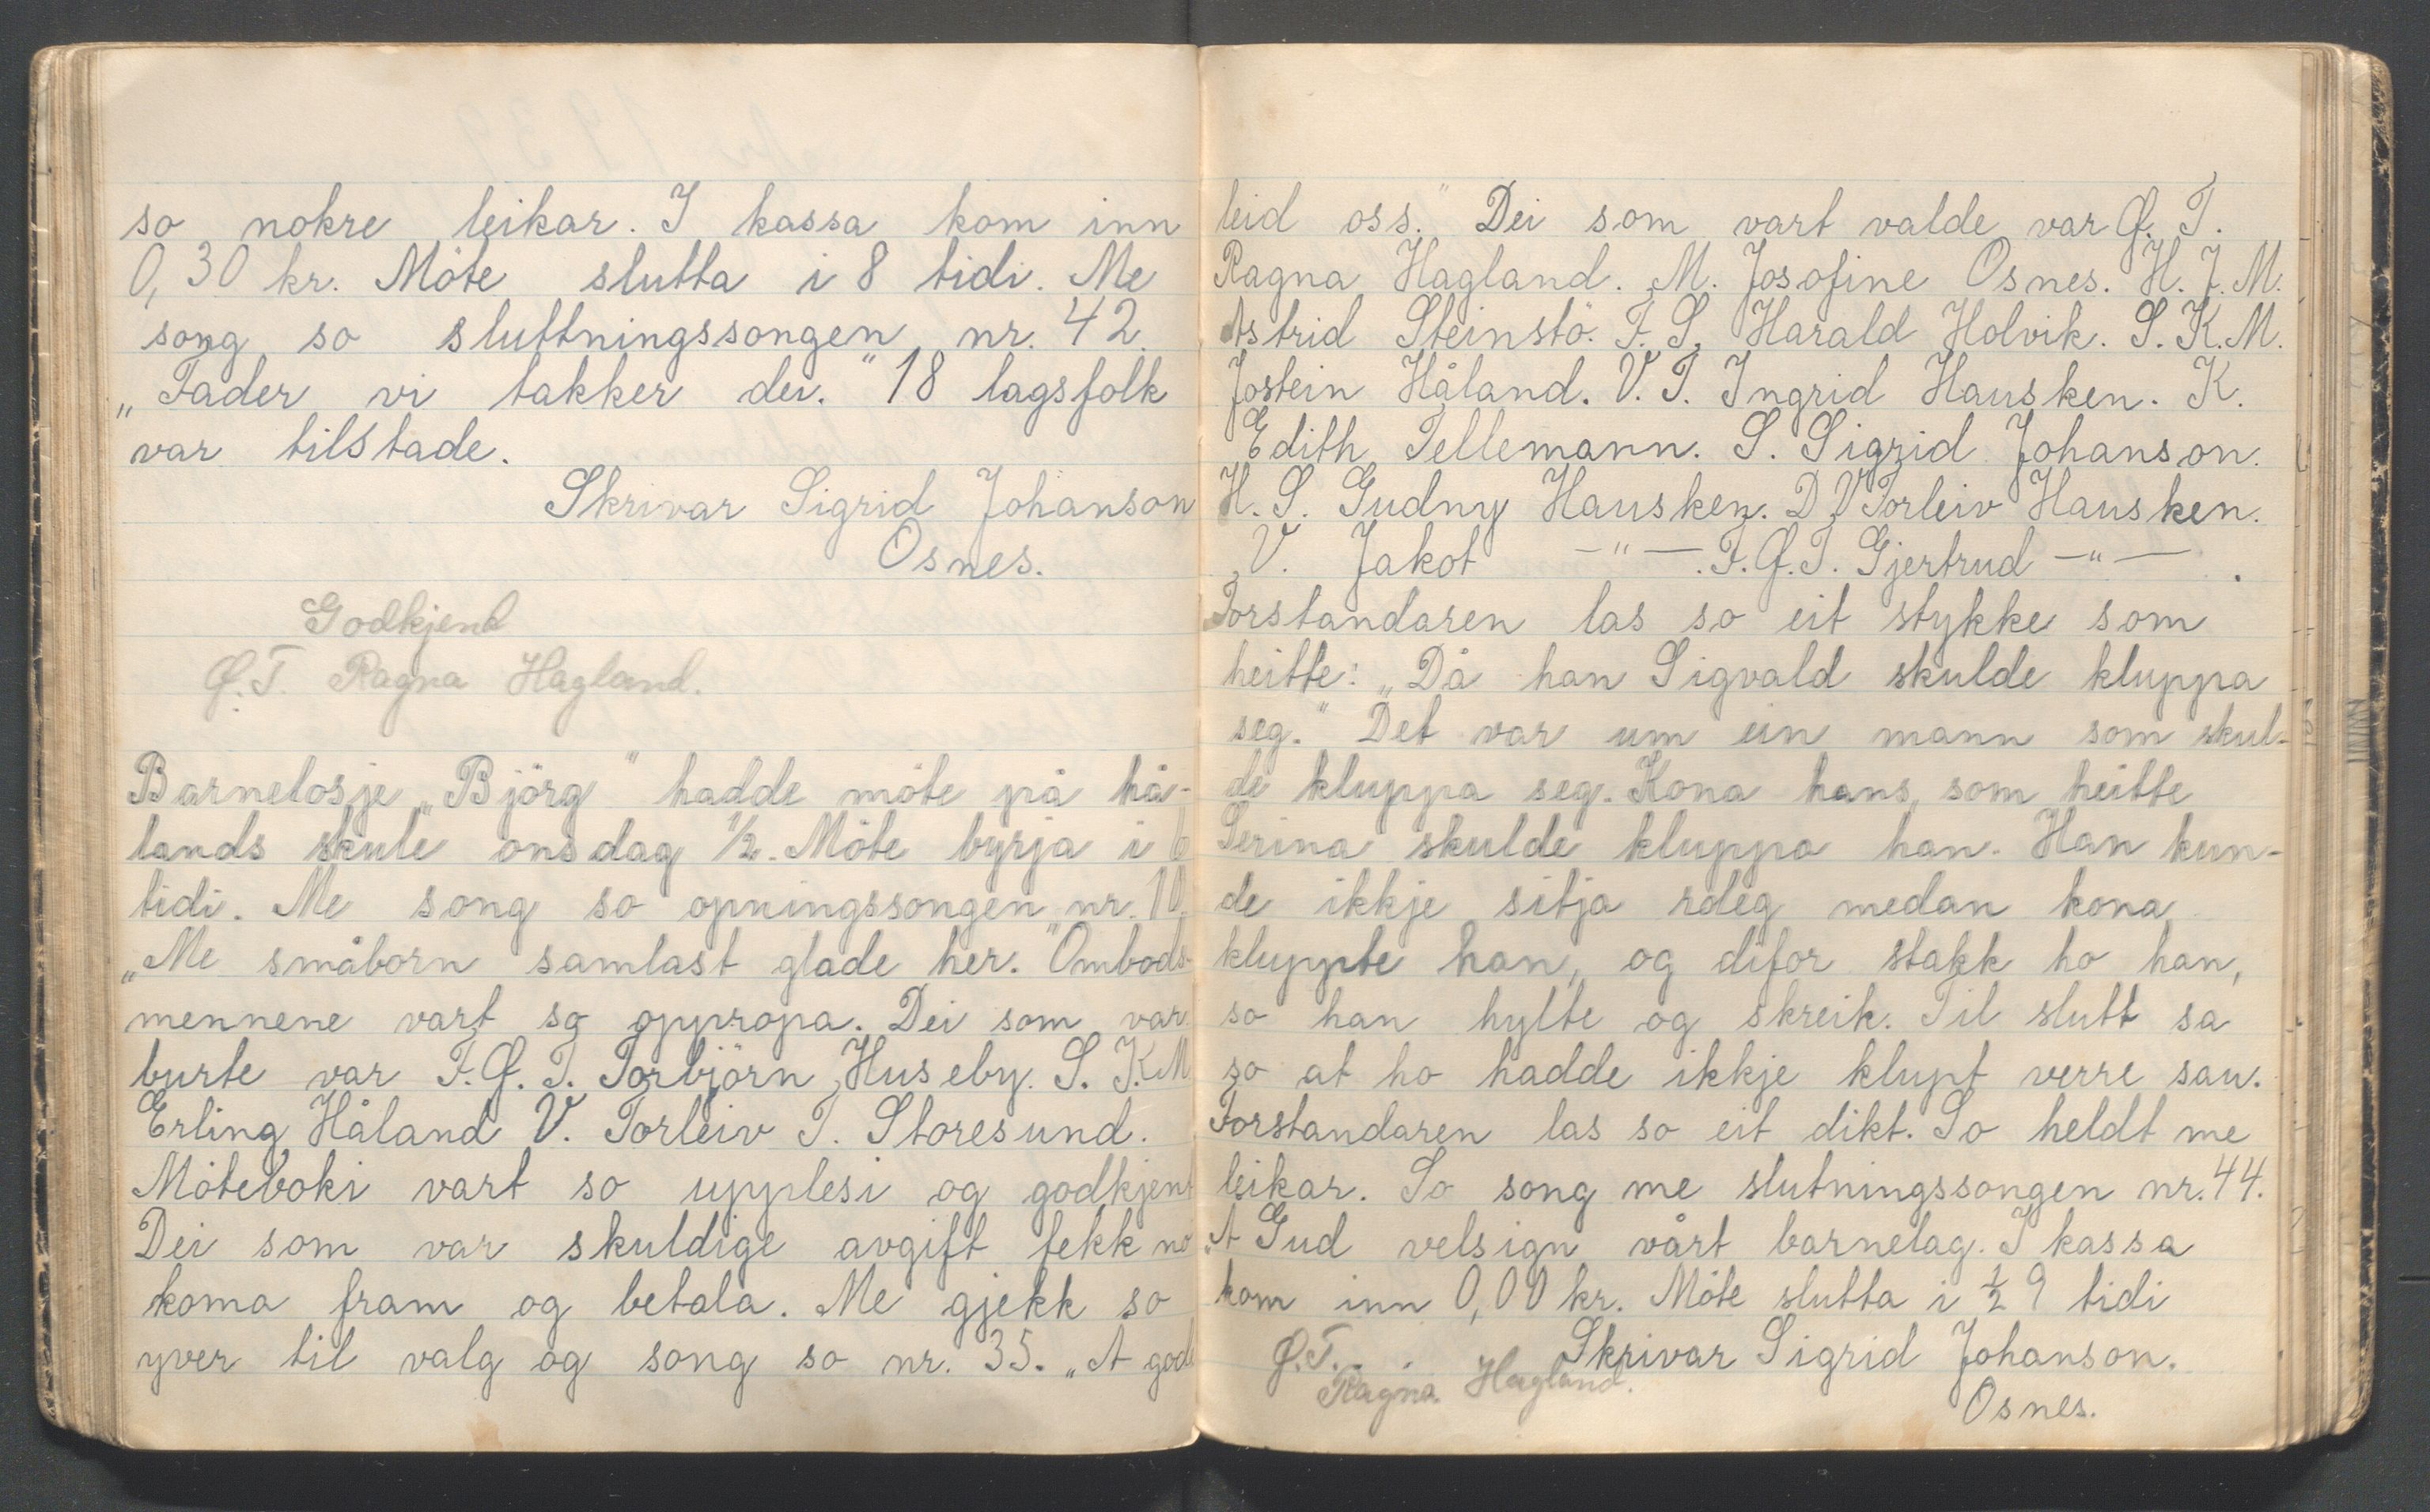 so nokre leikar. I kassa kom inn
0,30 kr. Möte slutta i 8 tidi. Me
song so sluttningssongen nr. 42.
„Fader vi takker dei." 18 lagsfolk
var tilstade.
Skrivar Sigrid Johanson
Osnes.
Godkjend
Ø.T. Ragna Hagland.
Barnelosje „Björg" hadde möte på hå-
lands skule onsdag 1/2. Möte byrja i 6
tidi. Me song so opningssongen nr. 10.
„Me småborn samlast glade her." Ombods-
mennene vart so oppropa. Dei som var
burte var F.Ø.T. Torbjörn Huseby. S.K.M
Erling Håland V. Torleiv T. Storesund.
Möteboki vart so upplesi og godkjent
Dei som var skuldige avgift fekk no
koma fram og betala. Me gjekk so
yver til valg og song so nr. 35. „Å gode
leid oss." Dei som vart valde var Ø.T.
Ragna Hagland. M. Josofine Osnes. H.J.M.
Astrid Steinstö. F.S. Harald Holvik. S.K.M.
Jostein Håland. V.T. Ingrid Hausken. K.
Edith Tellemann. S. Sigrid Johanson.
H.S. Gudny Hausken. D.V Torleiv Hausken.
V. Jakot —"—. F.Ø.T. Gjertrud —"—.
Forstandaren las so eit stykke som
heitte: „Då han Sigvald skulde kluppa
seg." Det var um ein mann som skul-
de kluppa seg. Kona hans, som heitte
Serina skulde kluppa han. Han kun-
de ikkje sitja rdeg medan kona
kluppte han, og difor stakk ho han,
so han hylte og skreik. Til slutt sa
so at ho hadde ikkje klupt verre sau.
Forstandaren las so eit dikt. So heldt me
leikar. So song me slutningssongen nr. 44.
„Å Gud velsign vårt barnelag. I kassa
kom inn 0,00 kr. Möte slutta i 1/2 9 tidi
Skrivar Sigrid Johanson.
Osnes.
Ø.T.
Ragna Hagland.